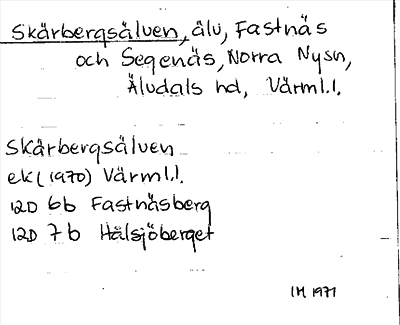 Skärbergsälven, älv, Fastnäs
och Segenäs, Norra Nysn,
Älvdals hd, Värml.l.
Skärbergsälven
ek (1970) Värml.l.
12D 6b Fastnäsberg
12D 7b Hälsjöberget
IM 1971